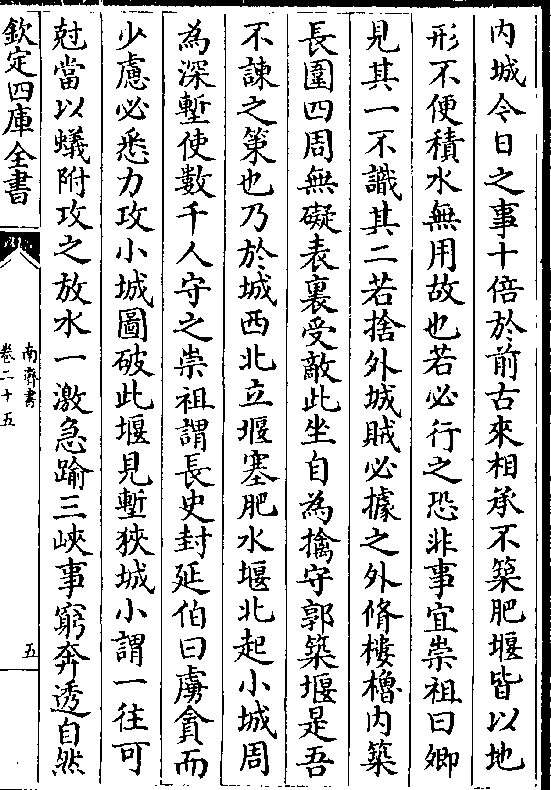 內城今日之事十倍於前古來相承不築肥堰皆以地
形不便積水無用故也若必行之恐非事宜崇祖曰卿
見其一不識其二若捨外城賊必據之外脩樓櫓内築
長圍四周無礙表裏受敵此坐自為擒守郭築堰是吾
不諫之策也乃於城西北立堰塞肥水堰北起小城周
為深塹使數千人守之崇祖謂長史封延伯曰虜貪而
少慮必悉力攻小城圖破此堰見塹狹城小謂一往可
尅當以蟻附攻之放水一激急踰三峽事窮奔透自然
欽定四庫全書
南齊書
卷二十五
五